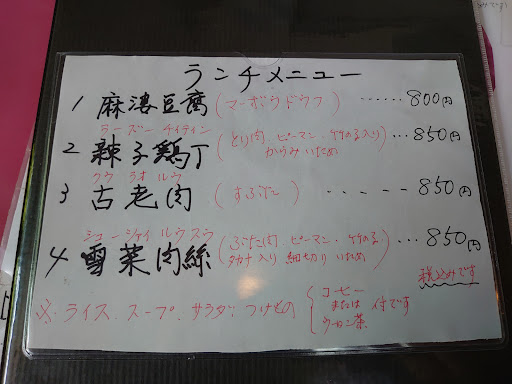 ランチメニュー
1 麻婆豆腐(マーボウドウフ)……800円
ラーズーチイティン
2 辣子鶏丁(とり肉、ピーマン・竹の子入り からみいため)…850円
クウラオルウ
3 古老肉(すぶた)-----850円
シューツァイルウスウ
4 雪菜肉絲(ぶた肉 ピーマン・竹の子 タカナ入り 細切りいため)…850円
税込みです
※ ライス、スープ、サラダ、つけもの {コーヒー または ウーロン茶 付です